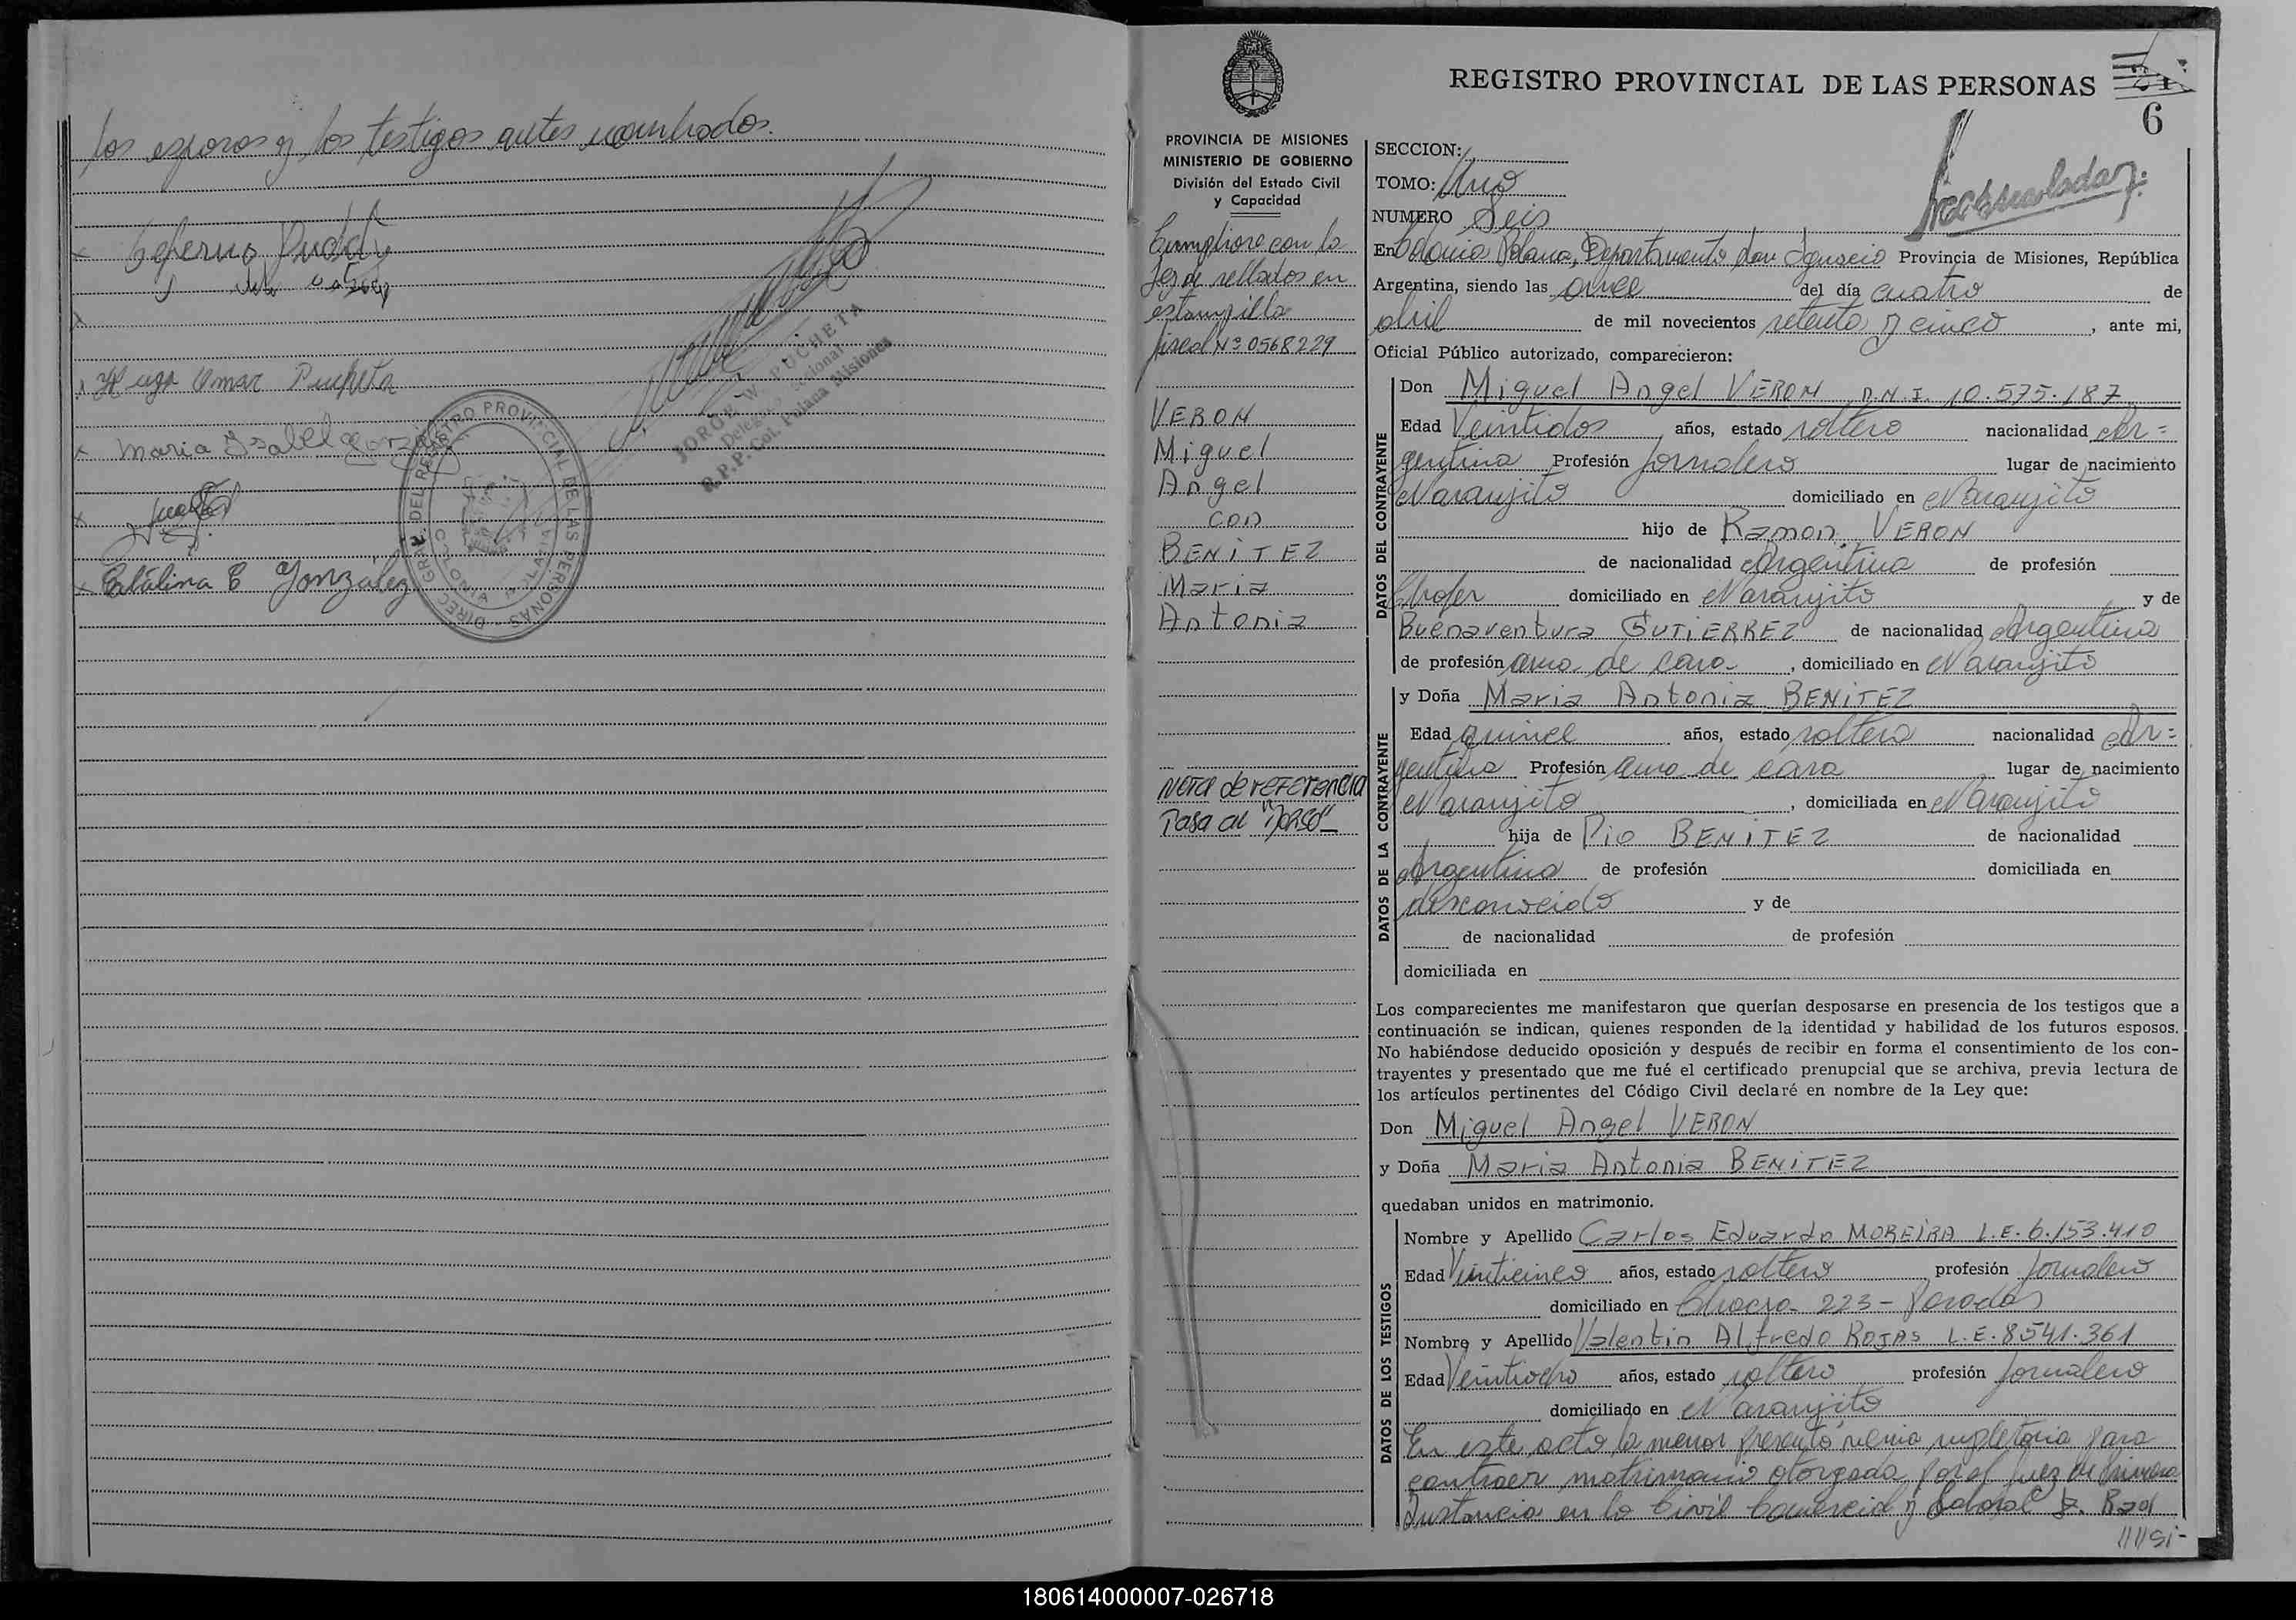 los esposos y los testigos antes nombrados.
Hugo Omar Pucheta
Maria Isabel
Catalina E González
JORGE W. PUCHETA
Delegado Seccional
R.P.P. Col. Polana Misiones
DIREC. GRAL. DEL REGISTRO PROVINCIAL DE LAS PERSONAS
REGISTRO PROVINCIAL DE LAS PERSONAS
6
PROVINCIA DE MISIONES
MINISTERIO DE GOBIERNO
División del Estado Civil
y Capacidad
Cumpliose con la
ley de sellados en
estampilla
fiscal Nº 0568229
VERON
Miguel
Angel
con
BENITEZ
Maria
Antonia
Nota de referencia
Pasa al "Dorso"
SECCION:
TOMO: Uno
NUMERO Seis
En Colonia Polana, Departamento San Ignacio Provincia de Misiones, República
Argentina, siendo las once del día cuatro de
abril de mil novecientos setenta y cinco, ante mi,
Oficial Público autorizado, comparecieron:
DATOS DEL CONTRAYENTE
Don Miguel Angel VERON D.N.I. 10.575.187
Edad Veintidos años, estado soltero nacionalidad Ar=
gentina Profesión Jornalero lugar de nacimiento
Naranjito domiciliado en Naranjito
hijo de Ramon VERON
de nacionalidad Argentina de profesión
Chofer domiciliado en Naranjito y de
Buenaventura GUTIERREZ de nacionalidad Argentina
de profesión ama de casa, domiciliado en Naranjito
DATOS DE LA CONTRAYENTE
y Doña Maria Antonia BENITEZ
Edad quince años, estado soltera nacionalidad Ar=
gentina Profesión ama de casa lugar de nacimiento
Naranjito, domiciliada en Naranjito
hija de Pio BENITEZ de nacionalidad
Argentina de profesión domiciliada en
desconocido y de
de nacionalidad de profesión
domiciliada en
Los comparecientes me manifestaron que querían desposarse en presencia de los testigos que a
continuación se indican, quienes responden de la identidad y habilidad de los futuros esposos.
No habiéndose deducido oposición y después de recibir en forma el consentimiento de los con-
trayentes y presentado que me fué el certificado prenupcial que se archiva, previa lectura de
los artículos pertinentes del Código Civil declaré en nombre de la Ley que:
Don Miguel Angel VERON
y Doña Maria Antonia BENITEZ
quedaban unidos en matrimonio.
DATOS DE LOS TESTIGOS
Nombre y Apellido Carlos Eduardo MOREIRA L.E. 6.153.410
Edad Veinticinco años, estado soltero profesión Jornalero
domiciliado en Chacra 223 - Posadas
Nombre y Apellido Valentin Alfredo ROJAS L.E. 8541.361
Edad Veintiocho años, estado soltero profesión Jornalero
domiciliado en Naranjito
En este acto la menor presentó venia supletoria para
contraer matrimonio otorgada por el Juez de Primera
Instancia en lo Civil Comercial y Laboral
180614000007-026718